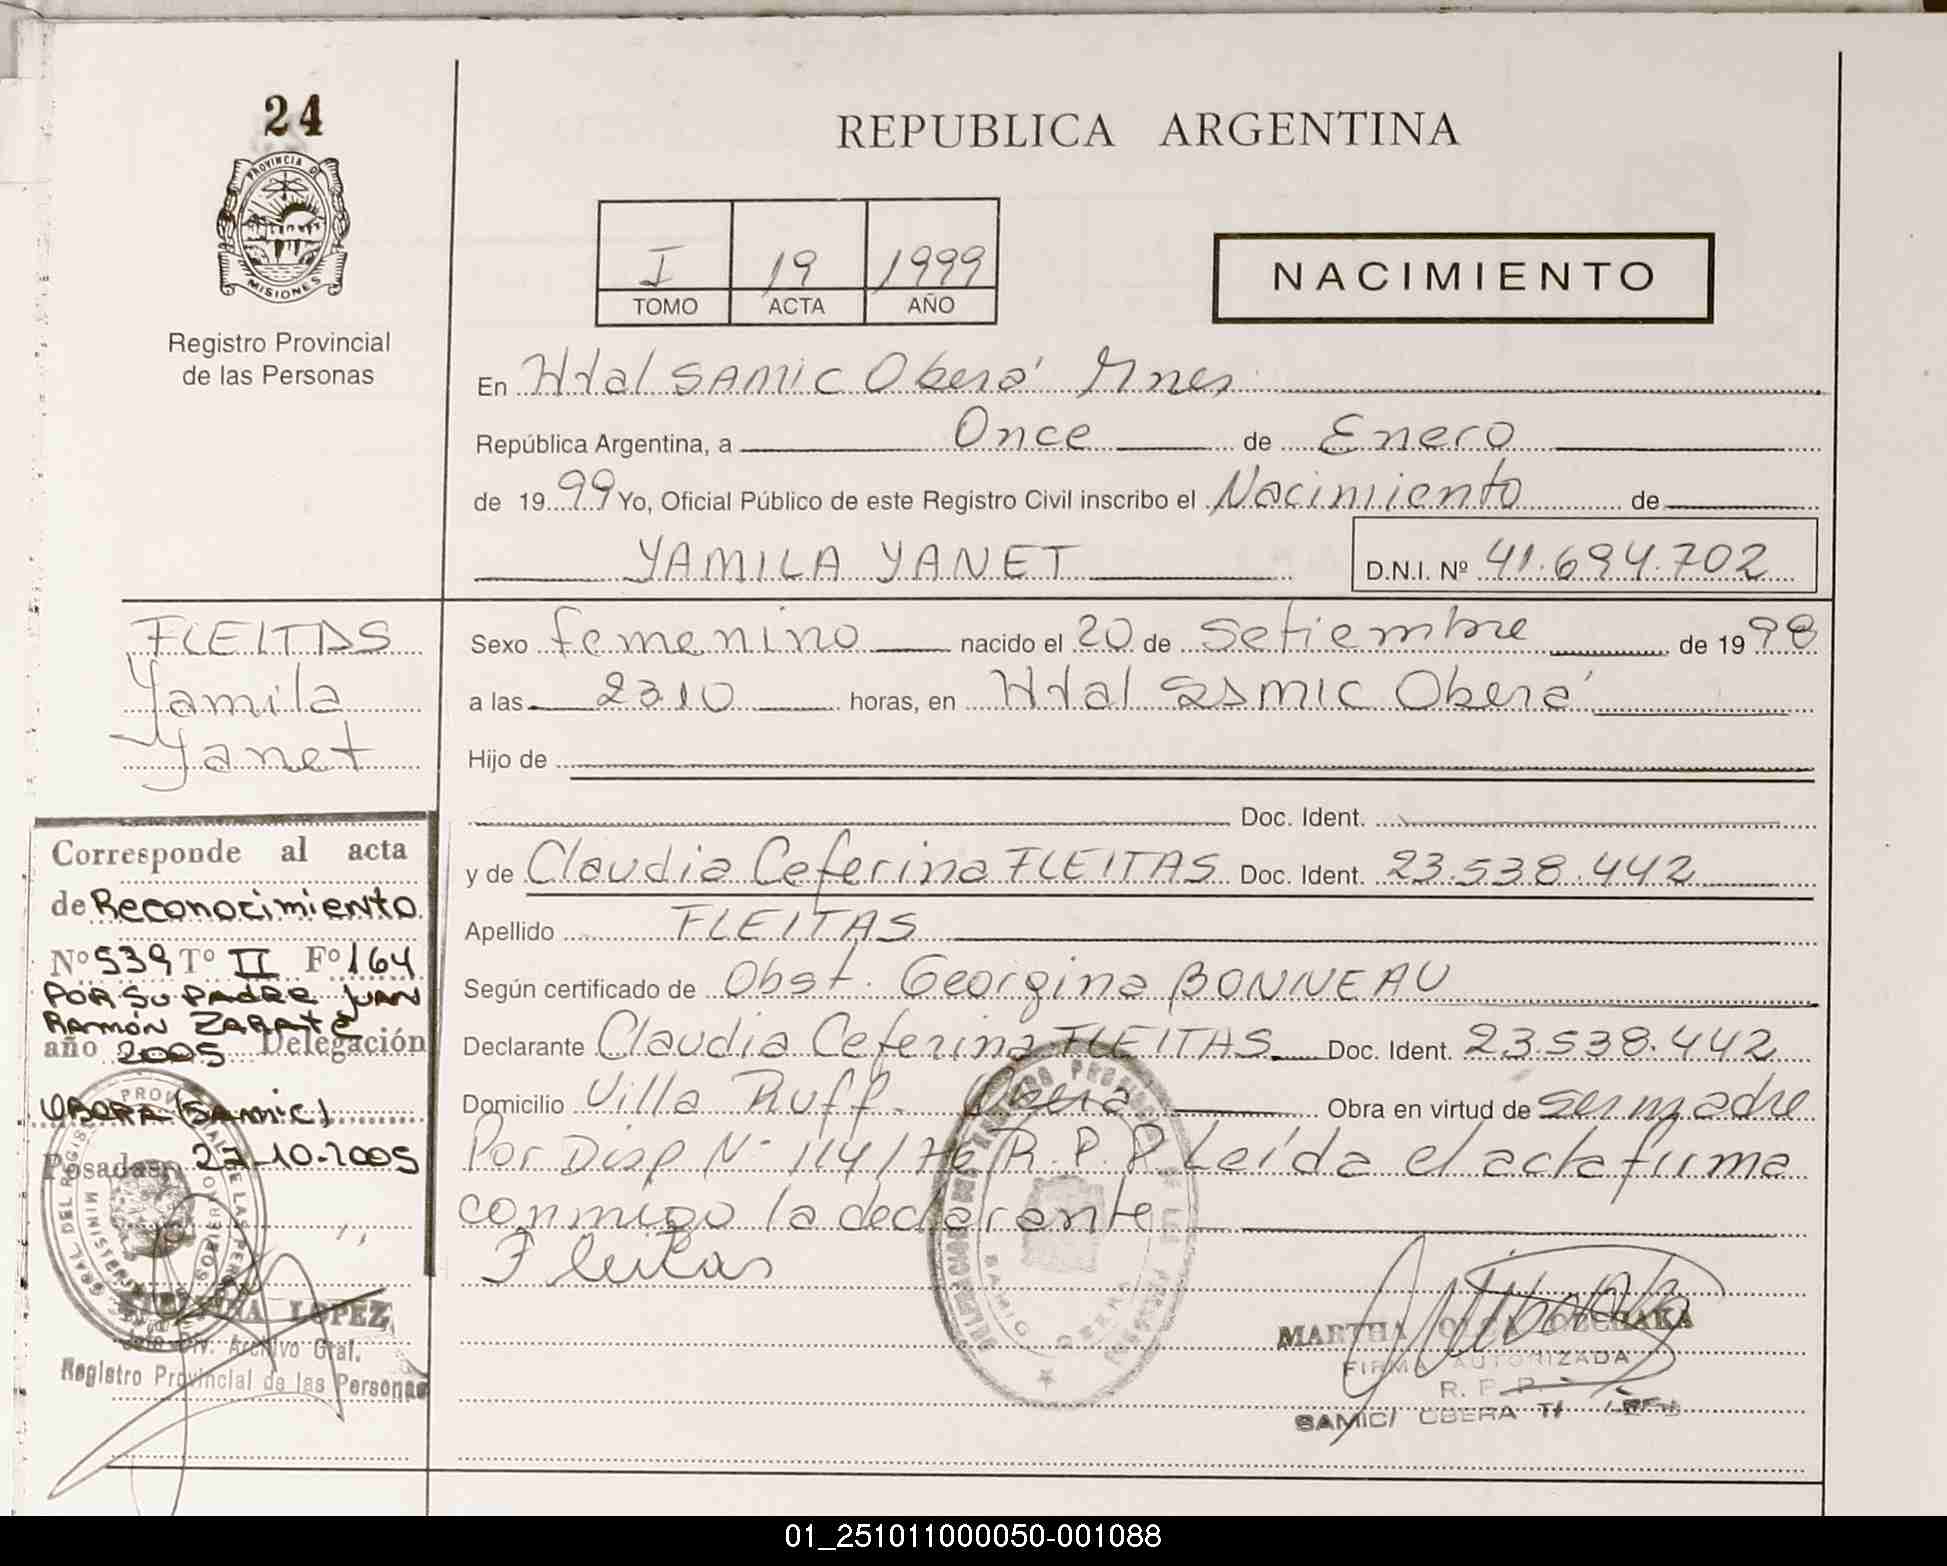 24
PROVINCIA D
MISIONES
Registro Provincial
de las Personas
REPUBLICA ARGENTINA
I 19 1999
TOMO ACTA AÑO
NACIMIENTO
En Htal SAMIC Oberá Mnes
República Argentina, a Once de Enero
de 19 99 Yo, Oficial Público de este Registro Civil inscribo el Nacimiento de
YAMILA YANET D.N.I. Nº 41.694.702
FLEITAS
Yamila
Yanet
Sexo femenino nacido el 20 de Setiembre de 19 98
a las 23 10 horas, en Htal SAMIC Oberá
Hijo de
Doc. Ident.
y de Claudia Ceferina FLEITAS Doc. Ident. 23.538.442
Apellido FLEITAS
Según certificado de Obst. Georgina BONNEAU
Declarante Claudia Ceferina FLEITAS Doc. Ident. 23.538.442
Domicilio Villa Ruff. Oberá Obra en virtud de ser madre
Por Disp Nº 114/76 R.P.P. Leída el acta firma
conmigo la declarante
Fleitas
Corresponde al acta
de Reconocimiento
Nº 539 Tº II Fº 164
POR SU PADRE JUAN
RAMÓN ZARATE
año 2005 Delegación
OBERA (SAMIC)
Posadas, 27-10-2005
LOPEZ
Jefe Div. Archivo Gral.
Registro Provincial de las Personas
SAMIC OBERA
MARTHA OLGA
FIRMA AUTORIZADA
R. P. P.
SAMIC/ OBERA
01_251011000050-001088